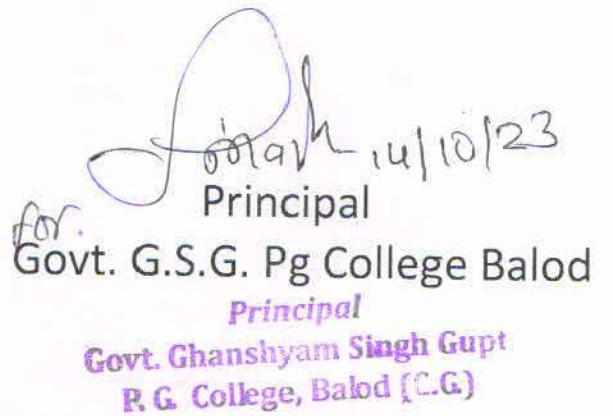 14/10/23
Principal
for.
Govt. G.S.G. Pg College Balod
Principal
Govt. Ghanshyam Singh Gupt
P. G. College, Balod (C.G.)